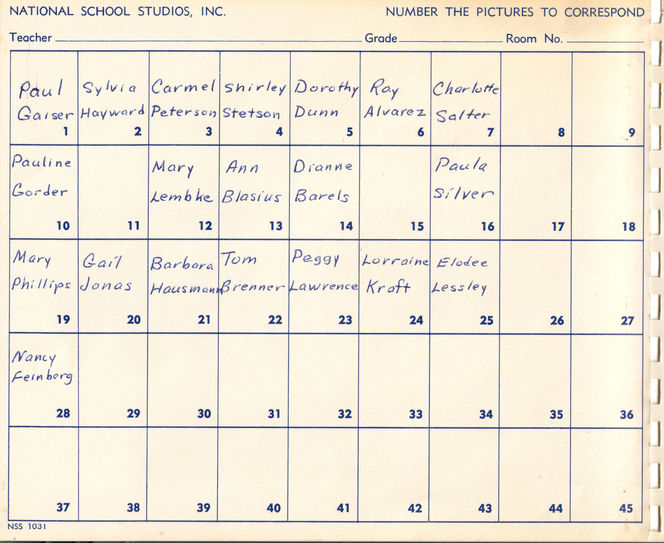 NATIONAL SCHOOL STUDIOS, INC. NUMBER THE PICTURES TO CORRESPOND
Teacher Grade Room No.
Paul Sylvia Carmel Shirley Dorothy Ray Charlotte
Gaiser Hayward Peterson Stetson Dunn Alvarez Salter
1 2 3 4 5 6 7 8 9
Pauline Mary Ann Dianne Paula
Gorder Lembke Blasius Barels Silver
10 11 12 13 14 15 16 17 18
Mary Gail Barbara Tom Peggy Lorraine Elodee
Phillips Jonas Hausmann Brenner Lawrence Kraft Lessley
19 20 21 22 23 24 25 26 27
Nancy
Feinberg
28 29 30 31 32 33 34 35 36
37 38 39 40 41 42 43 44 45
NSS 1031